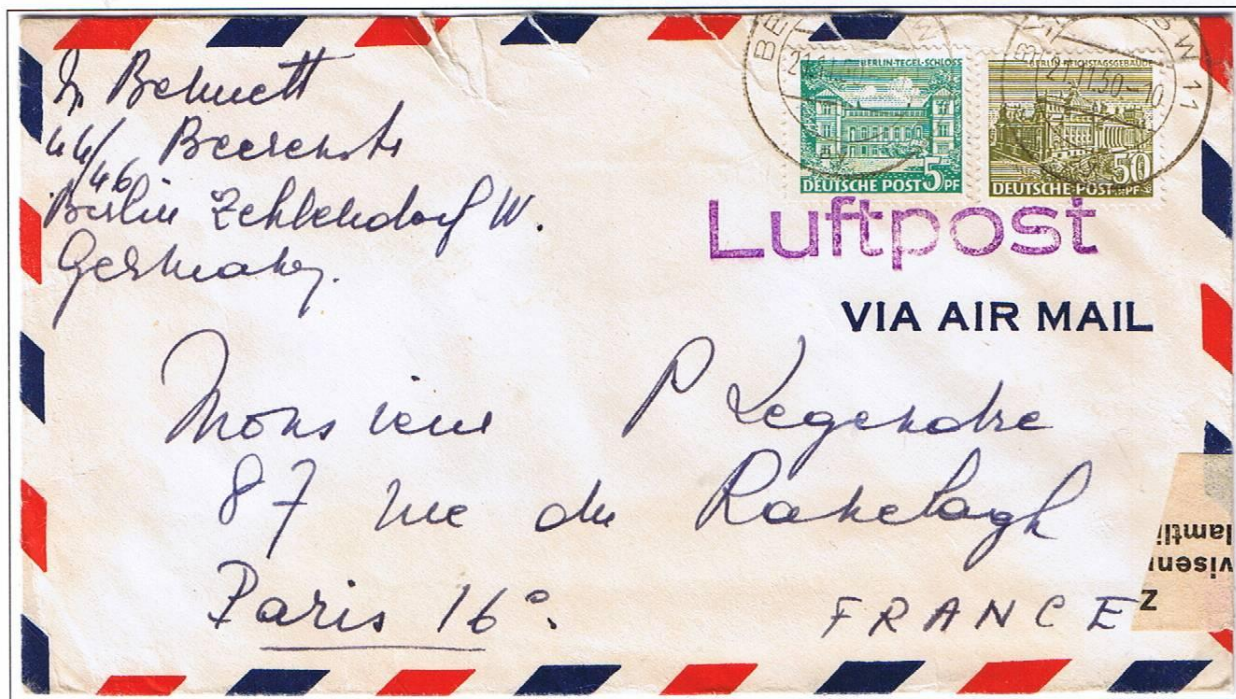 Dr Behnett
44/46 Beerenstr
Berlin Zehlendorf W.
Germany.
BERLIN SW 11
21.11.50-10
BERLIN-TEGEL-SCHLOSS
DEUTSCHE POST 5 PF
BERLIN-REICHSTAGSGEBÄUDE
DEUTSCHE POST 50 PF
Luftpost
VIA AIR MAIL
Monsieur P Legendre
87 rue du Ranelagh
Paris 16e.
FRANCE
Z